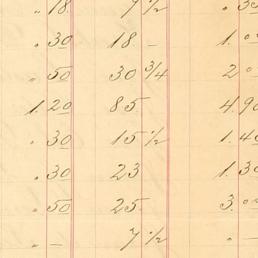 " 18 7 1/2 . 35
" 30 18 - 1.00
" 50 30 3/4 2.00
1.20 85 4.90
" 30 15 1/2 1.40
" 30 23 1.30
" 50 25 3.00
" - 7 1/2 " -